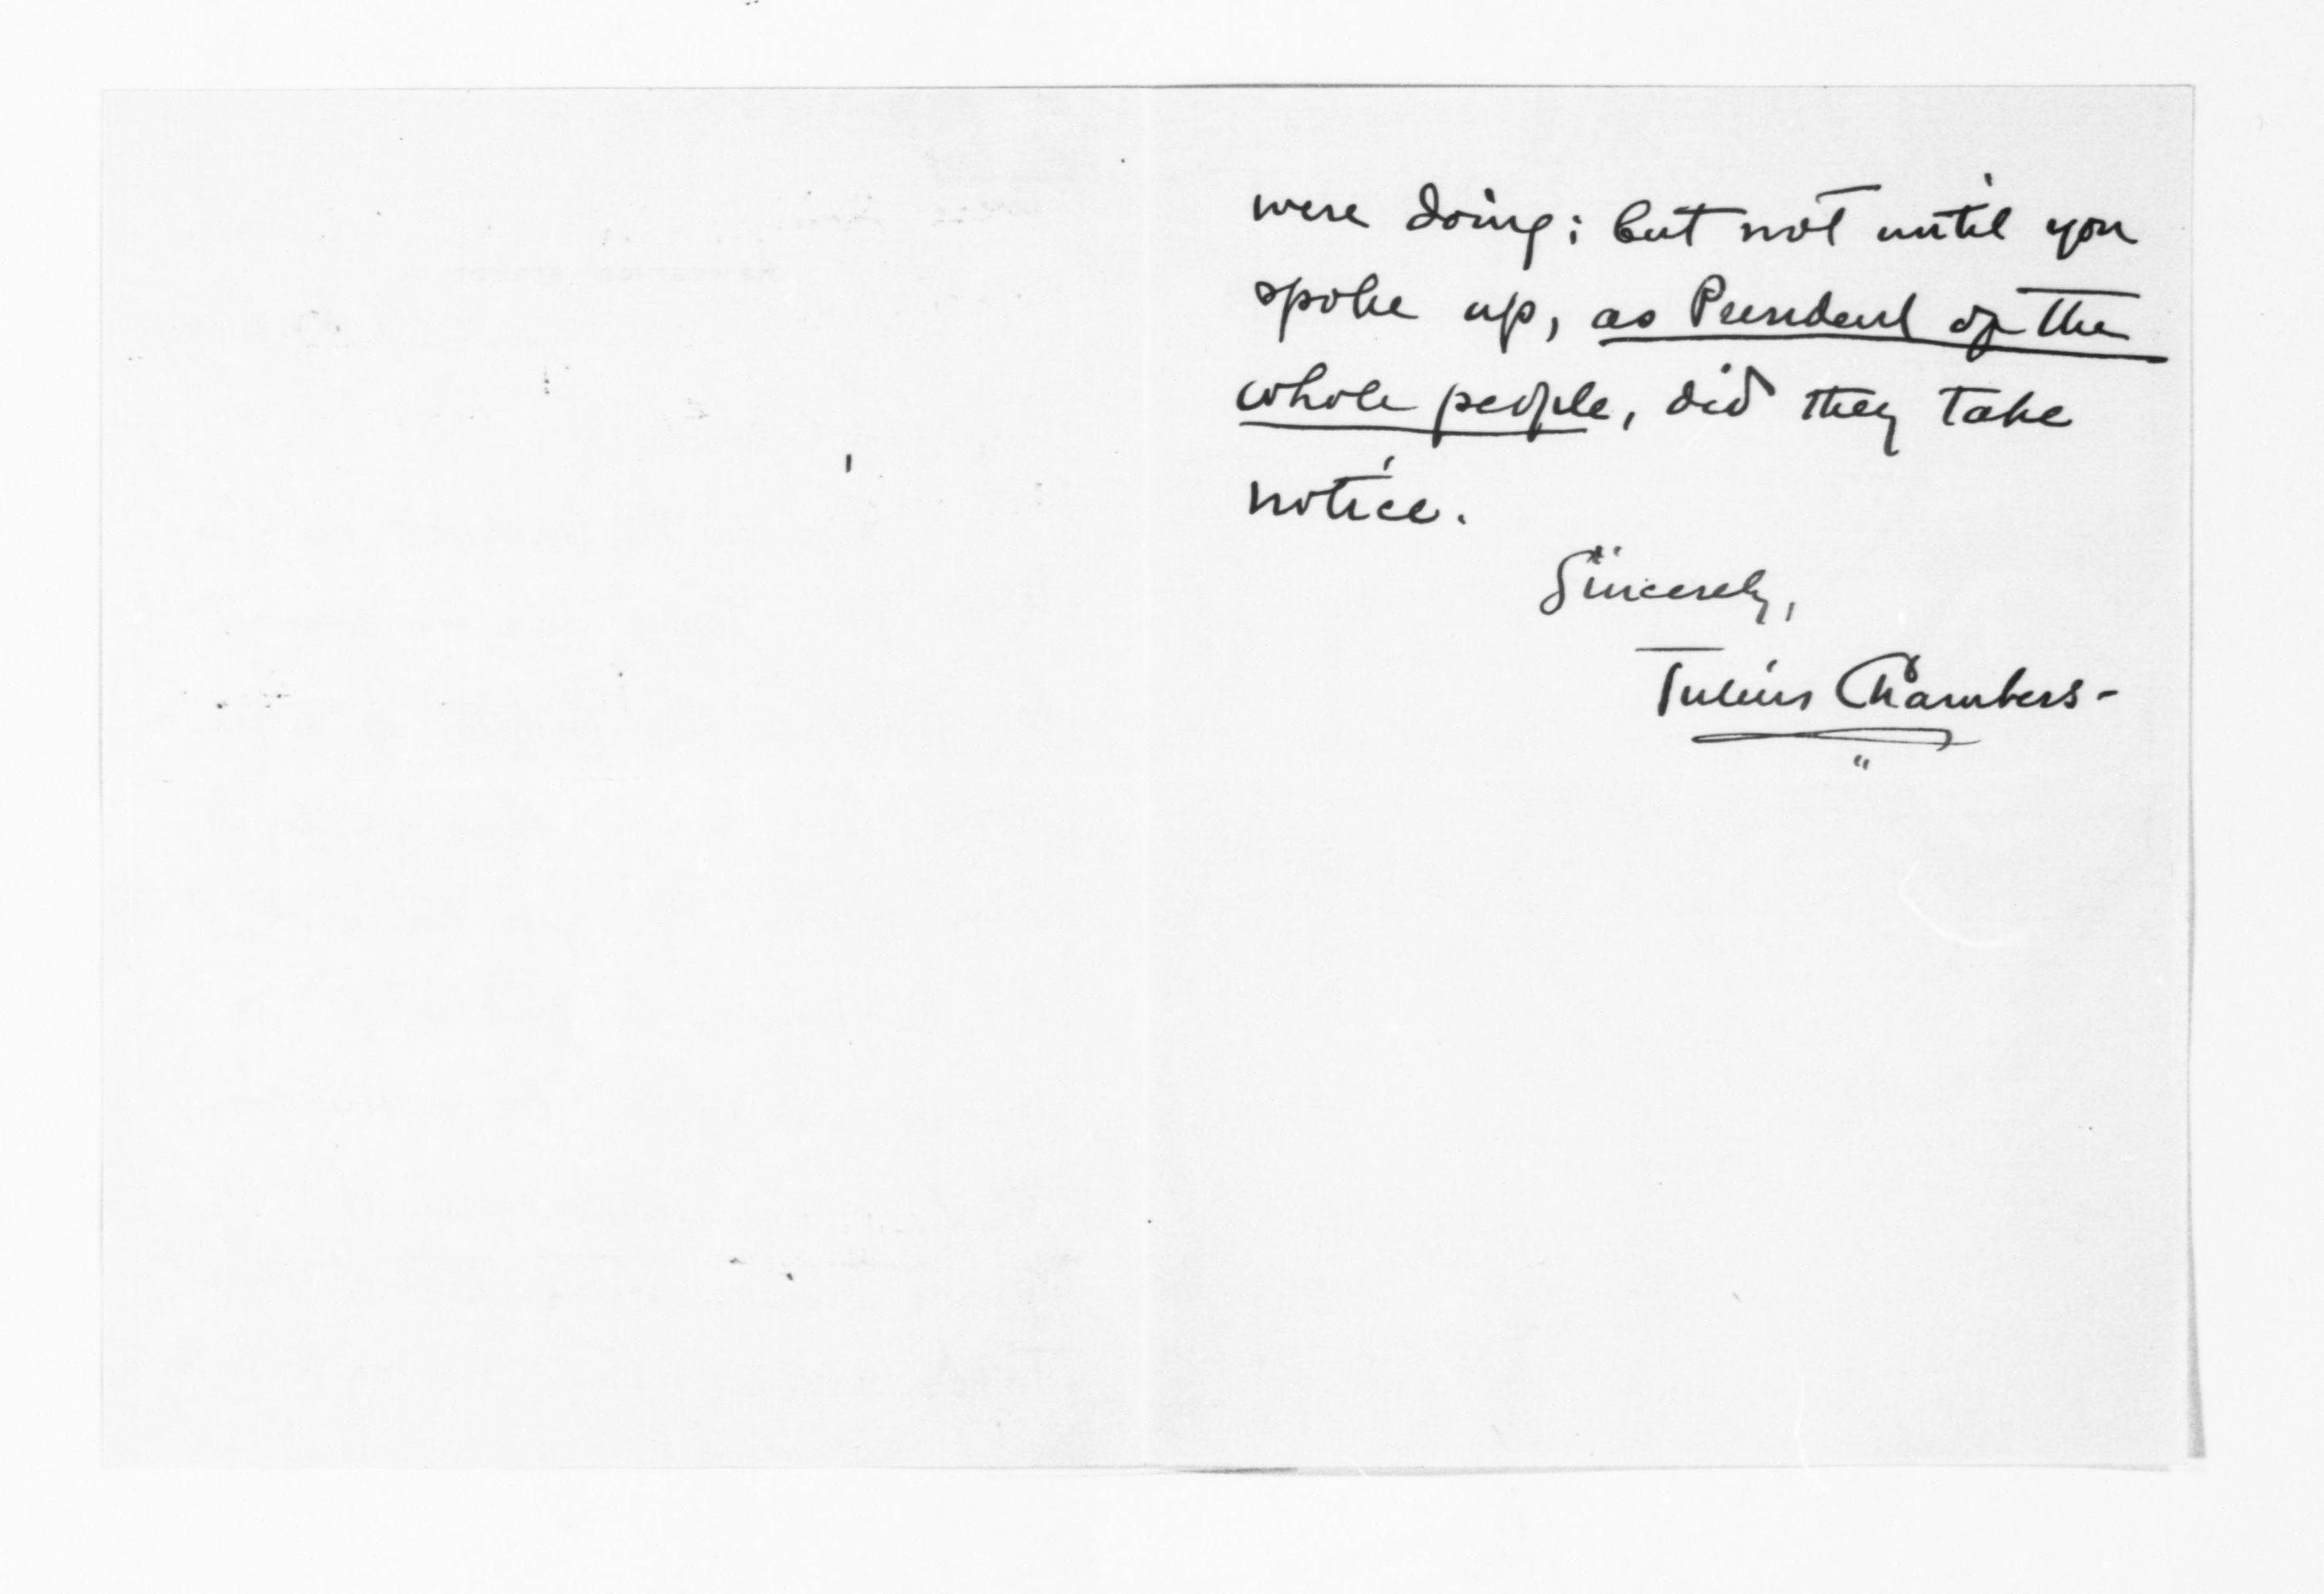 were doing; but not until you
spoke up, as President of the
whole people, did they take
notice.
Sincerely,
Julius Chambers-